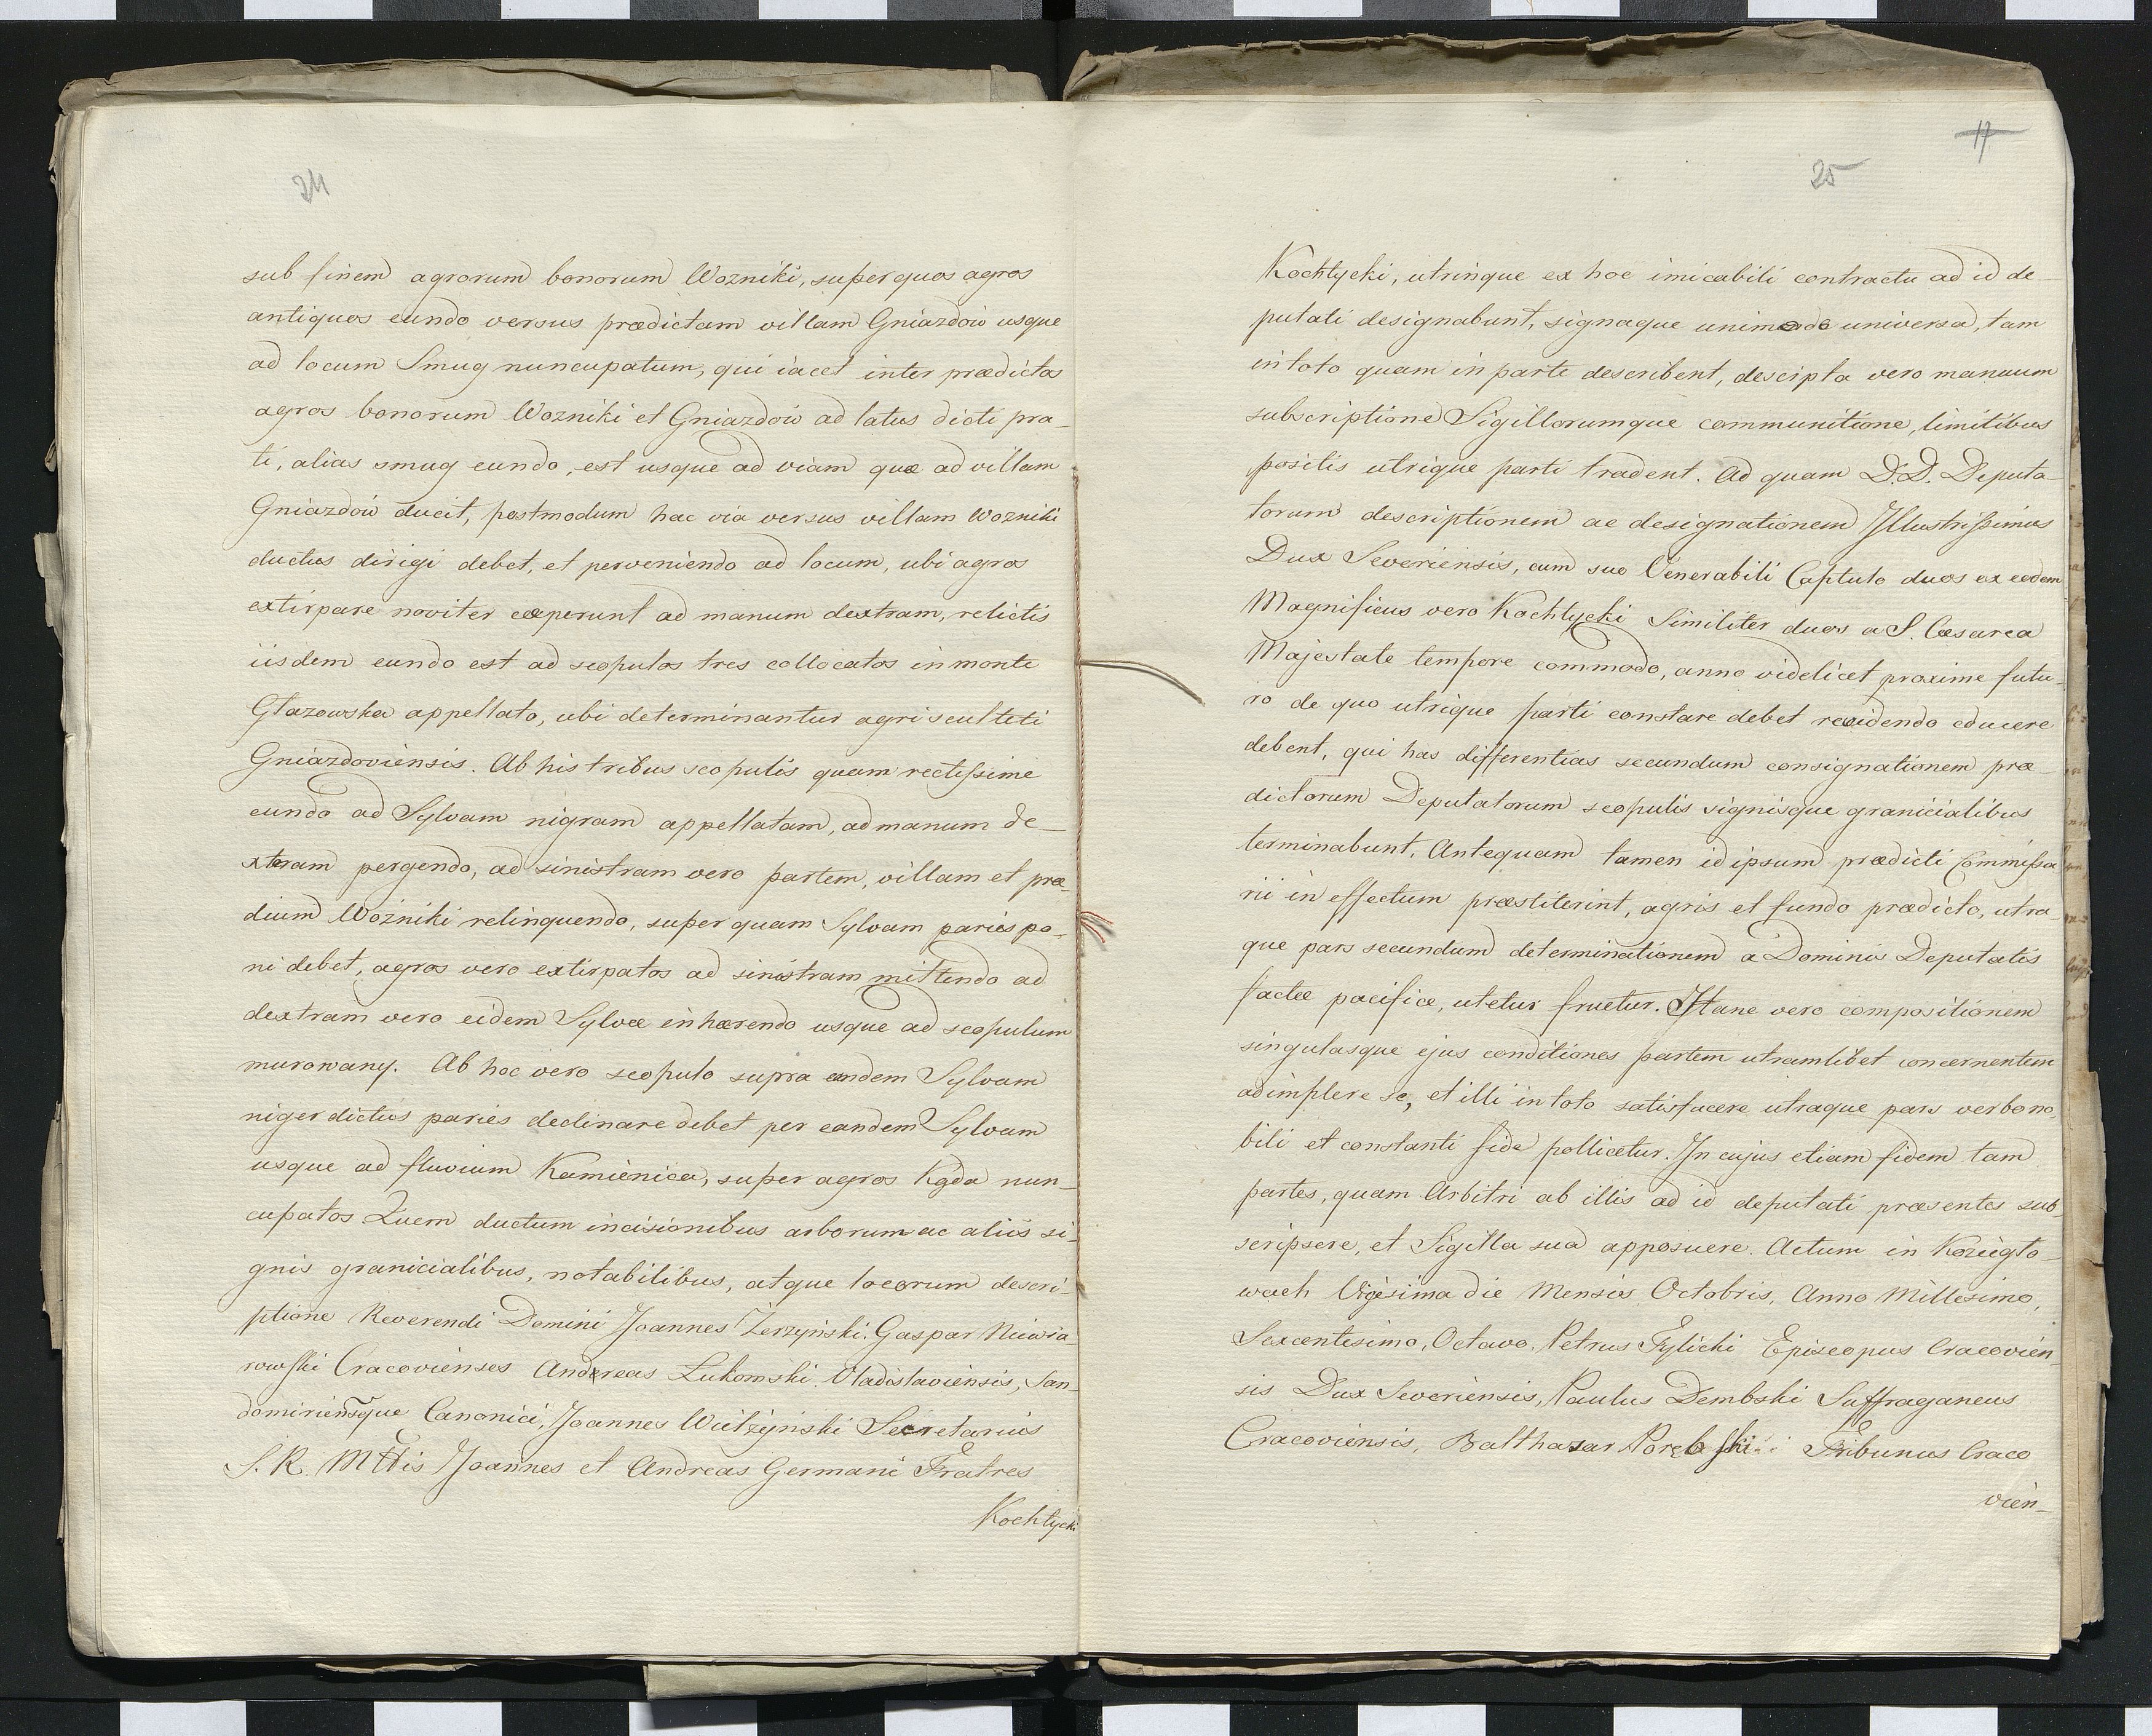 24
sub finem agrorum bonorum Wozniki, super quos agros
antiquos eundo versus prædictam villam Gniazdow usque
ad locum Smug nuncupatum, qui iacet inter prædictos
agros bonorum Wozniki et Gniazdow ad latus dicti pra-
ti, alias smug eundo, est usque ad viam quæ ad villam
Gniazdow ducit, postmodum hac via versus villam Wozniki
ductus dirigi debet, et perveniendo ad locum, ubi agros
extirpare noviter cæperunt ad manum dextram, relictis
iisdem eundo est ad scopulos tres collocatos in monte
Glazowska appellato, ubi determinantur agri sculteti
Gniazdoviensis. Ab his tribus scopulis quam rectissime
eundo ad Sylvam nigram appellatam, ad manum de-
xteram pergendo, ad sinistram vero partem, villam et præ-
dium Wozniki relinquendo, super quam Sylvam paries po-
ni debet, agros vero extirpatos ad sinistram mittendo ad
dextram vero eidem Sylvæ inhærendo usque ad scopulum
murowany. Ab hoc vero scopulo supra eandem Sylvam
niger dictus paries declinare debet per eandem Sylvam
usque ad fluvium Kamienica, super agros Kąda nun-
cupatos Quem ductum incisionibus arborum ac aliis si-
gnis granicialibus, notabilibus, atque locorum descri-
ptione Reverendi Domini Joannes Zerzyński. Gaspar Niewia-
rowski Cracovienses Andreas Lukomski Vladislaviensis, San-
domiriensque Canonici, Joannes Wielzyński Secretarius
S. R. Mttis Joannes et Andreas Germani Fratres
Kochtycki
17
25
Kochtycki, utrinque ex hoc imicabili contractu ad id de-
putati designabunt, signaque unimode universa, tam
in toto quam in parte describent, descipta vero manuum
subscriptione Sigillorumque communitione, limitibus
positis utrique parti tradent. Ad quam D.D. Deputa-
torum descriptionem ac designationem Illustrissimus
Dux Severiensis, cum suo Venerabili Captulo duos ex eodem
Magnificus vero Kochtycki Similiter duos a S. Cæsarea
Majestate tempore commodo, anno videlicet proxime futu-
ro de quo utrique parti constare debet recidendo educere
debent, qui has differentias secundum consignationem præ-
dictorum Deputatorum scopulis signisque granicialibus
terminabunt. Antequam tamen id ipsum prædicti Commissa-
rii in effectum præstiterint, agris et fundo prædicto, utra-
que pars secundum determinationem a Dominis Deputatis
factæ pacifice, utetur fruetur. Hanc vero compositionem
singulasque ejus conditiones partem utramlibet concernentem
adimplere se, et illi in toto satisfacere utraque pars verbo no-
bili et constanti fide pollicetur. In cujus etiam fidem tam
partes, quam Arbitri ab illis ad id deputati præsentes sub-
scripsere, et Sigilla sua apposuere. Actum in Koziegło-
wach Vigesima die Mensis Octobris, Anno Millesimo,
Sexcentesimo, Octavo. Petrus Tylicki Episcopus Cracovien-
sis Dux Severiensis, Paulus Dembski Suffraganeus
Cracoviensis, Balthasar Porębski Tribunus Craco
vien-